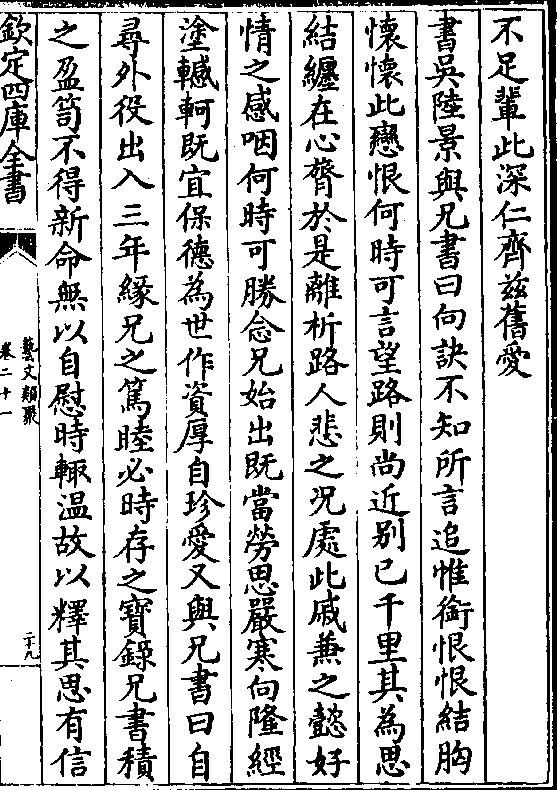 不足輩此深仁齊茲舊愛
書吳陸景與兄書曰向訣不知所言追惟銜恨恨結胸
懷懷此戀恨何時可言望路則尚近别已千里其為思
結纏在心膂於是離析路人悲之况處此戚兼之懿好
情之感咽何時可勝念兄始出既當勞思嚴寒向隆經
塗轗軻既宜保德為世作資厚自珍愛又與兄書曰自
尋外役出入三年緣兄之篤睦必時存之寶錄兄書積
之盈笥不得新命無以自慰時輙温故以釋其思有信
欽定四庫全書
藝文類聚
卷二十一
二十九